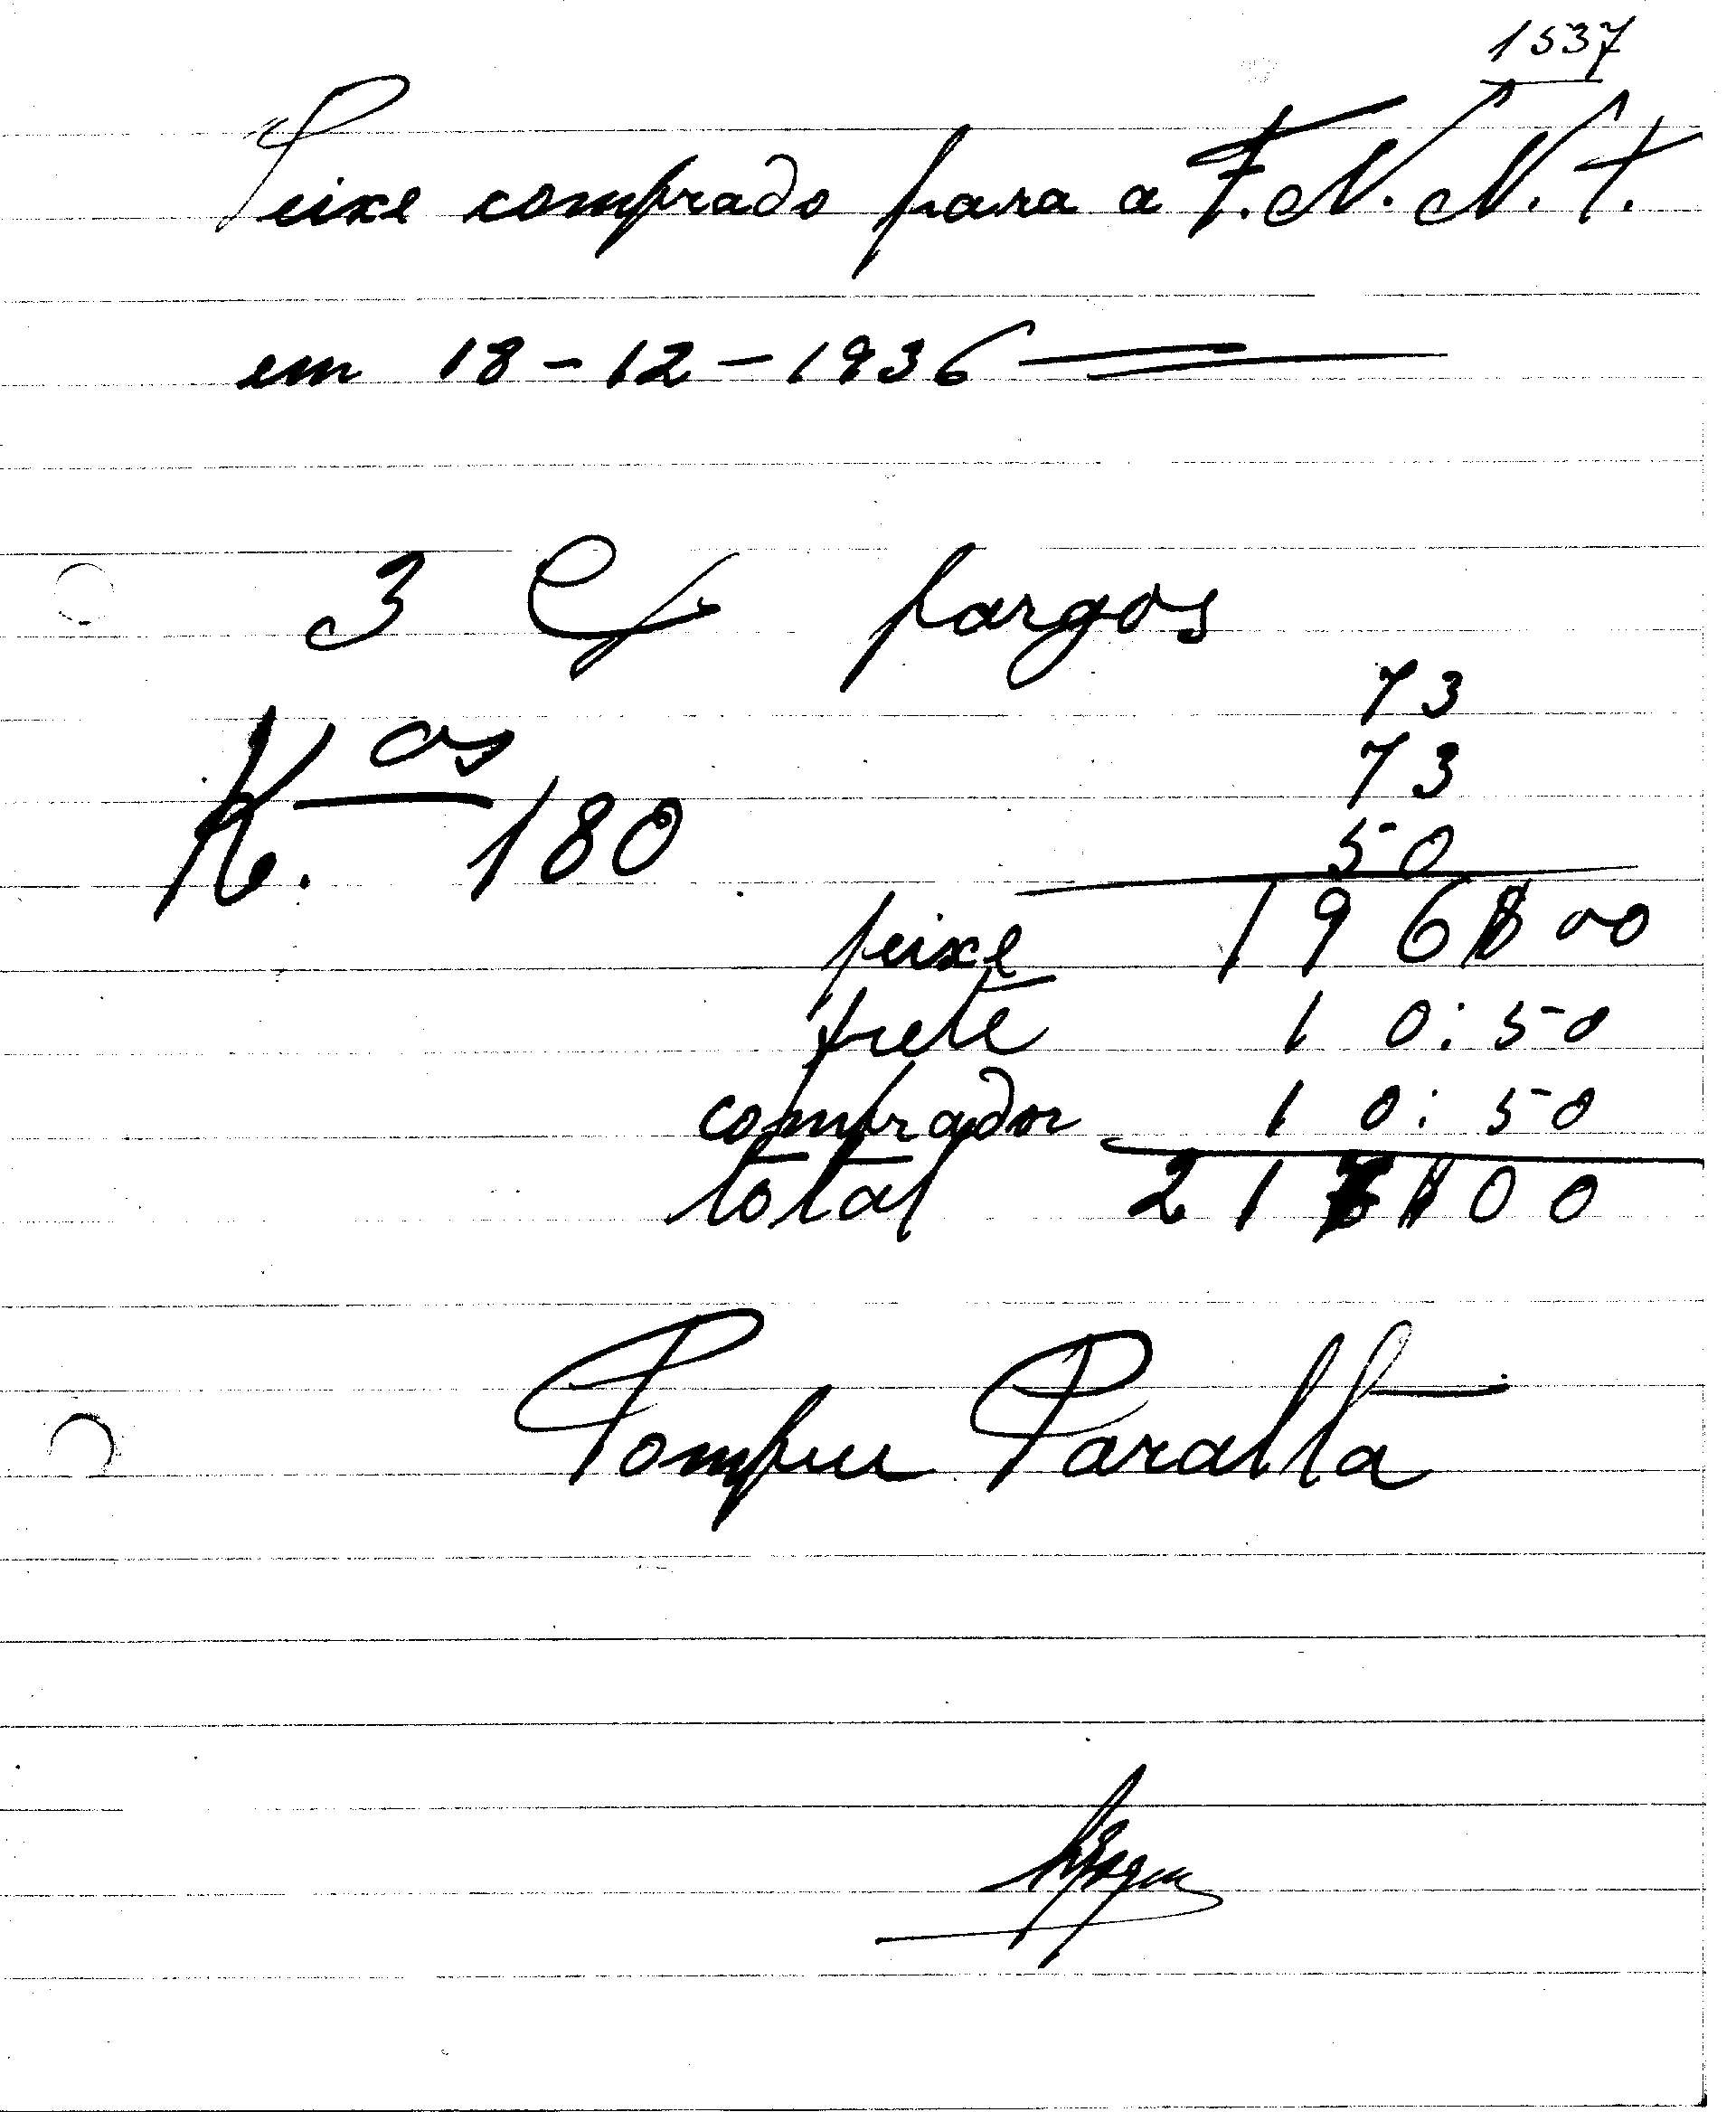 1537
Peixe comprado para a F.N.N.T.
em 18-12-1936
3 Cx pargos
73
K.os 180
73
50
peixe 196$00
frete 10:50
comprador 10:50
total 217$00
Pompeu Paralta